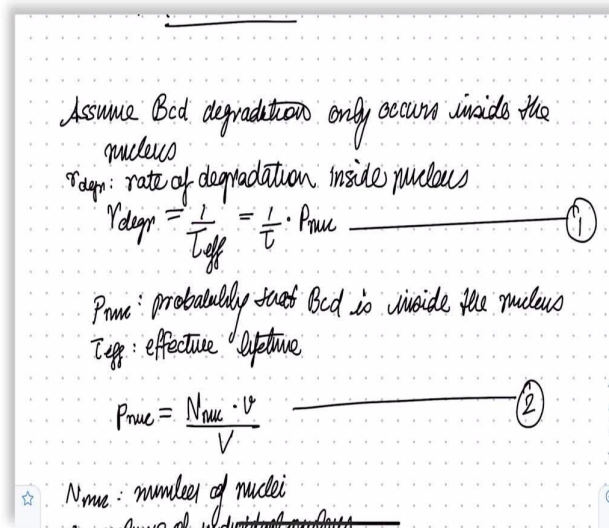 Assume Bcd degradation only occurs inside the
nucleus
r_degr: rate of degradation inside nucleus
r_degr = 1/τ_eff = 1/τ · P_nuc ①
P_nuc: probability that Bcd is inside the nucleus
τ_eff: effective lifetime
P_nuc = (N_nuc · v)/V ②
N_nuc: number of nuclei
of individual nucleus